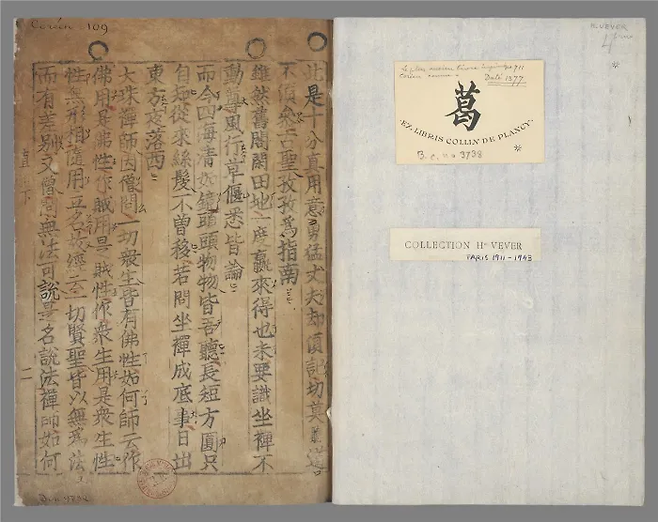 Coréen 109
此是十分真用意勇猛丈夫却須記切莫聽道
不須 聖孜孜爲指南
雖然舊閣閑田地一度贏來得也未要識坐禪不
動尊風行草偃悉皆論
而今四海清如鏡頭頭物物皆吾聽長短方圓只
自知從來絲髮不曾移若問坐禪成底事日出
東方夜落西
大珠禪師因僧問一切衆生皆有佛性如何師云作
佛用是佛性作賊用是賊性作衆生用是衆生性
性無形相隨用立名故經云一切賢聖皆以無爲法
而有差別又僧問無法可說是名說法禪師如何
二
H. VEVER
Le plus ancien livre imprimé
Coréen connu
Daté 1377
葛
EX-LIBRIS COLLIN DE PLANCY
B. c. no 3738
COLLECTION Hri VEVER
PARIS 1911-1943